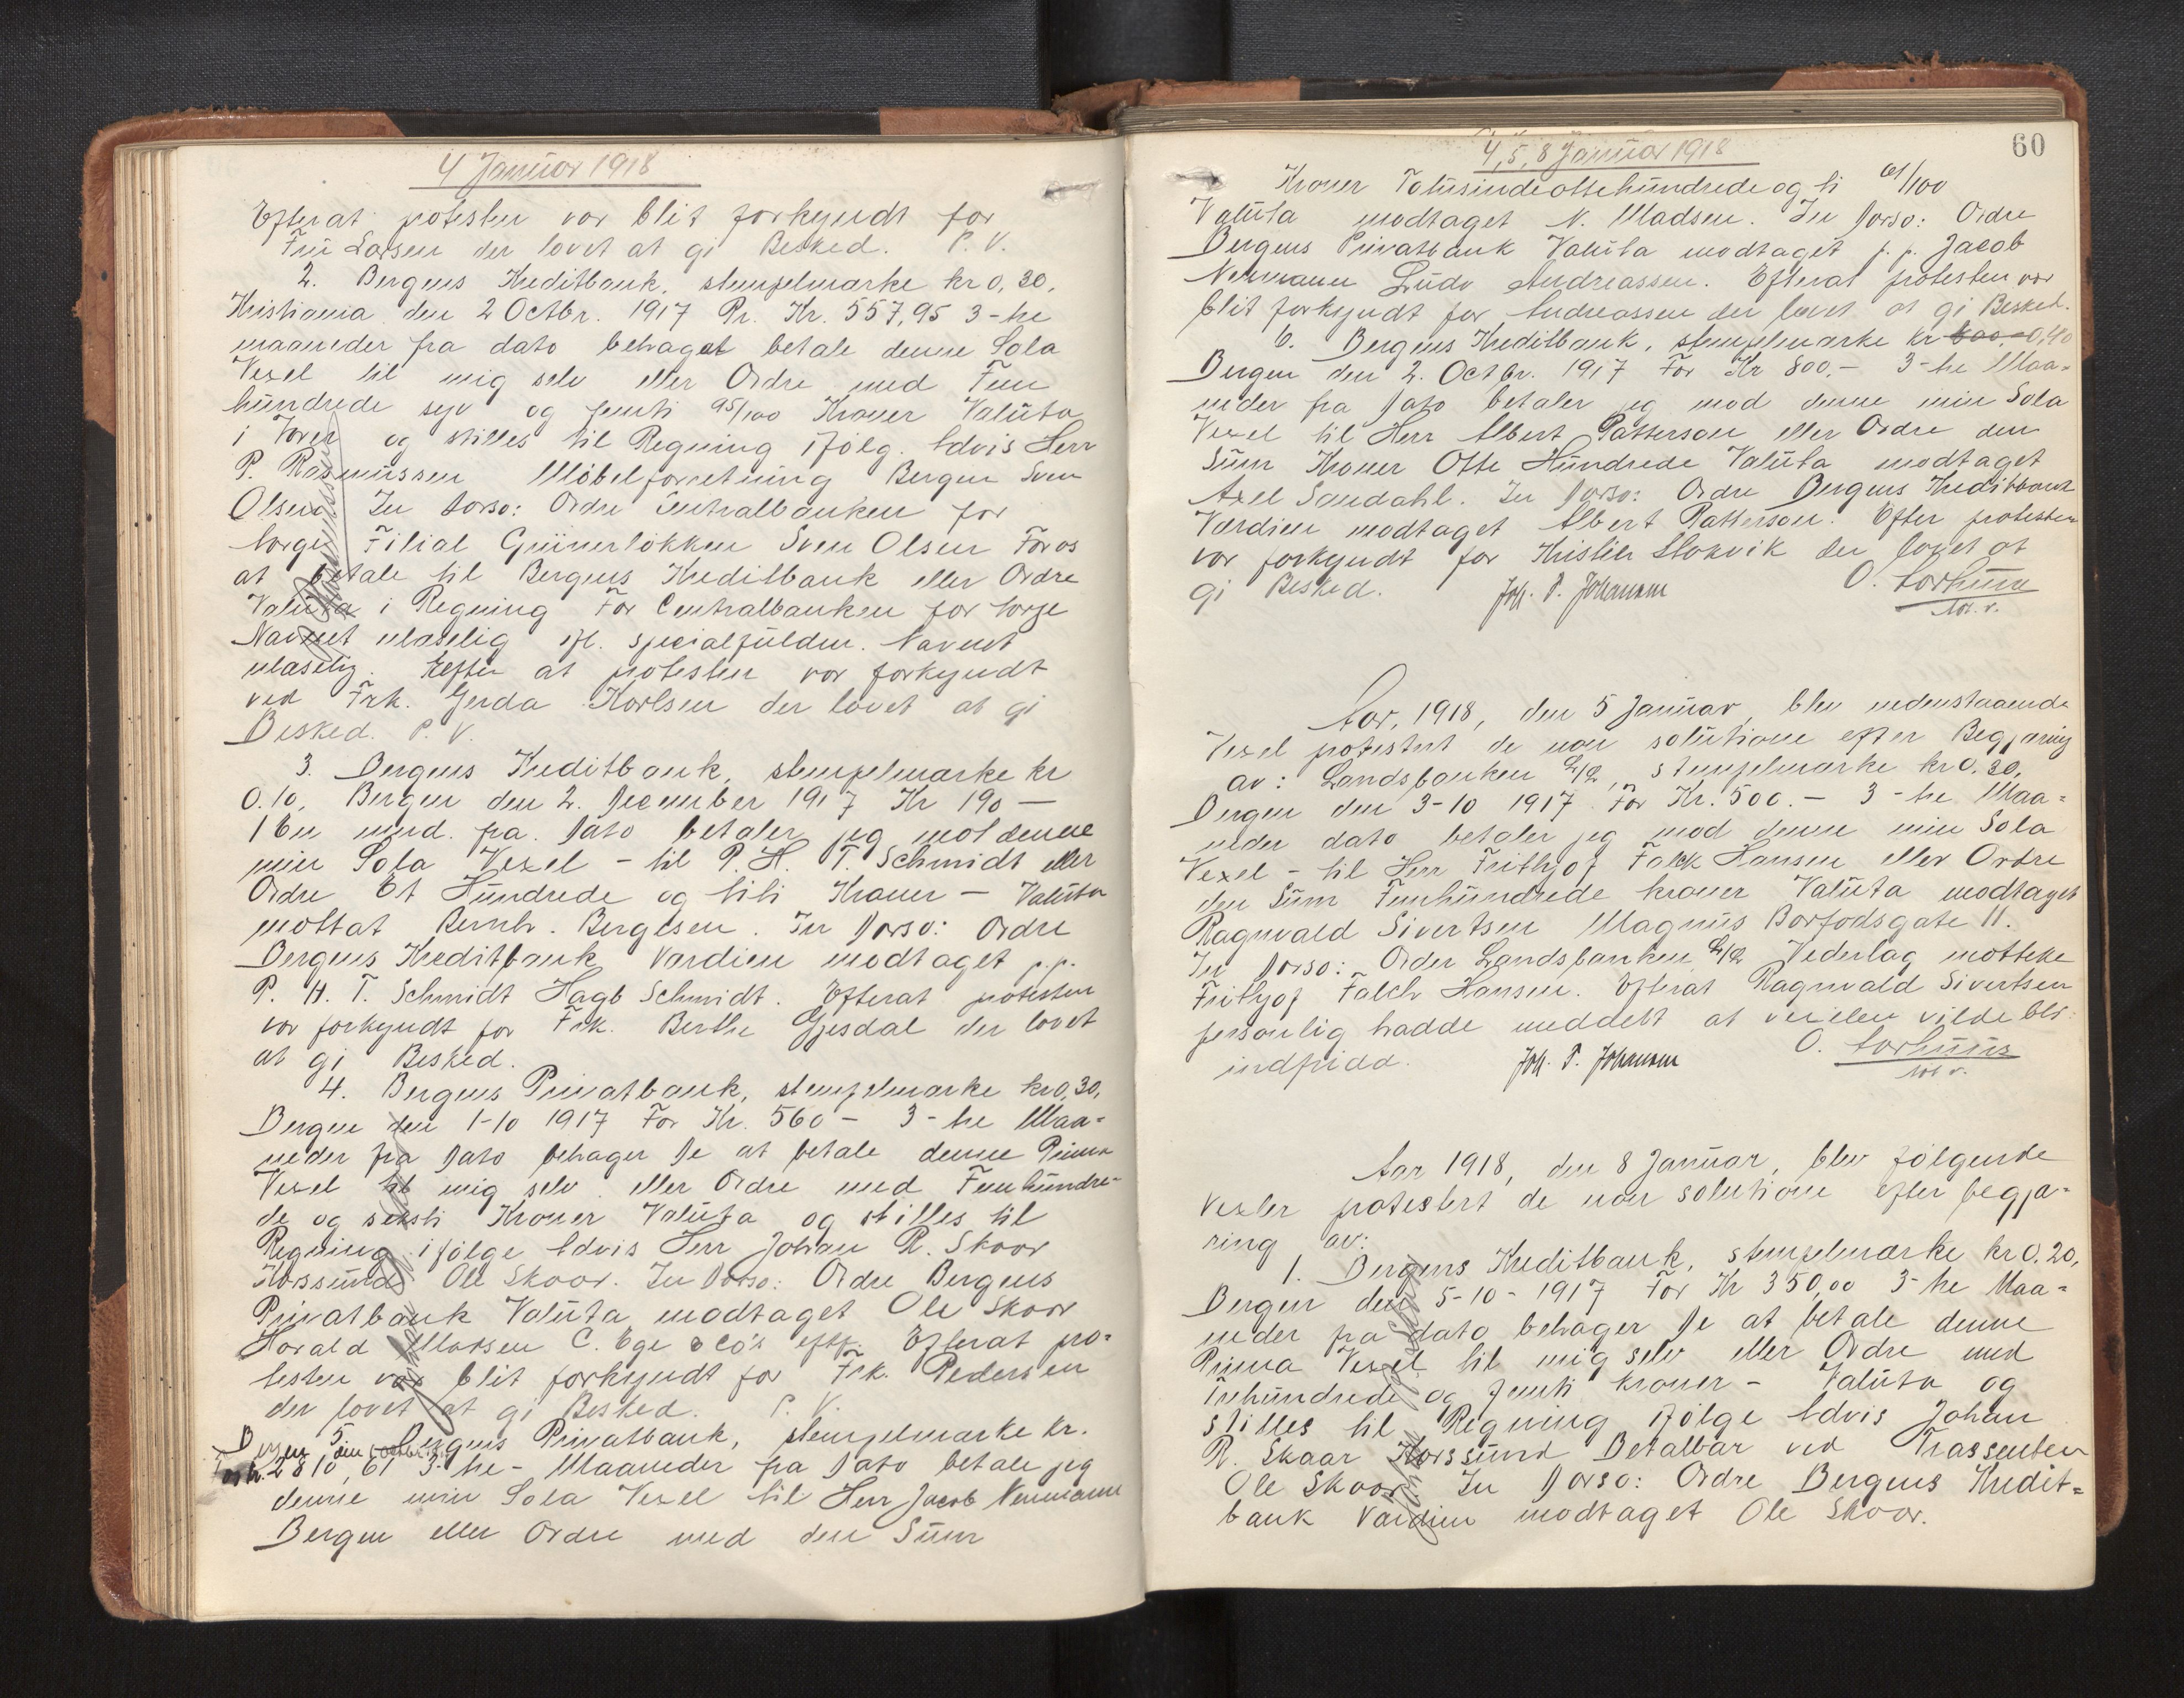 4 Januar 1918
Efterat protesten var blit forkyndt for
Fru Larsen der lovet at gi Besked. P. V.
2. Bergens Kreditbank, stempelmarke kr 0,30.
Kristiania den 2 Octbr. 1917 Pr. Kr. 557,95 3-tre
maaneder fra dato behaget betale denne Sola
Vexel til mig selv eller Ordre med Fem
hundrede syv og femti 95/100 Kroner Valuta
i Varer og stilles til Regning ifølg. Advis Herr
P. Rasmussen Møbelforretning Bergen Sven
Olsen In dorso: Ordre Centralbanken for
Norge Filial Grünerløkken Sven Olsen For os
at betale til Bergens Kreditbank eller Ordre
Valuta i Regning For Centralbanken for Norge
Navnet ulæselig ifl. specialfuldm. Navnet
ulæselig. Efter at protesten var forkyndt
ved Frk. Gerda Karlsen der lovet at gi
Besked. P. V.
3. Bergens Kreditbank, stempelmarke kr
0.10, Bergen den 2. December 1917 Kr 190 —
1 En mnd. fra Dato betaler jeg mot denne
min Sola Vexel – til P. H. T. Schmidt eller
Ordre Et Hundrede og titi Kroner – Valuta
mottat Bernh. Bergesen. In Dorso: Ordre
Bergens Kreditbank Værdien modtaget p.p.
P. H. T. Schmidt Hagb Schmidt. Efterat protesten
var forkyndt for Frk. Berthe Gjesdal der lovet
at gi Besked.
4. Bergens Privatbank, stempelmarke kr 0,30,
Bergen den 1-10 1917 For Kr. 560 – 3-tre Maa-
neder fra Dato behager De at betale denne Prima
Vexel til mig selv eller Ordre med Femhundre-
de og seksti Kroner Valuta og stilles til
Regning ifølge Advis Herr Johan R. Skaar
Korssund Ole Skaar. In Dorso: Ordre Bergens
Privatbank Valuta modtaget Ole Skaar
Harald Madsen C. Ege & Co's eftf. Efterat pro-
testen var blit forkyndt for Frk. Pedersen
der lovet at gi Besked. P. V.
5. Bergens Privatbank, stempelmarke kr.
Bergen den
2810,61 3-tre – Maaneder fra Dato betale jeg
denne min Sola Vexel til Herr Jacob Neumann
Bergen eller Ordre med den Sum
60
4, 5, 8 Januar 1918
Kroner Totusindeottehundrede og ti 61/100
Valuta modtaget N. Madsen. In Dorso: Ordre
Bergens Privatbank Valuta modtaget p.p. Jacob
Neumann Ludv Andreassen. Efterat protesten var
blit forkyndt for Andreassen der lovet at gi Besked.
6. Bergens Kreditbank, stempelmarke kr 800,– 0,40
Bergen den 2. Octbr. 1917 For Kr 800.– 3-tre Maa-
neder fra Dato betaler jeg mod denne min Sola
Vexel til Herr Albert Patterson eller Ordre den
Sum Kroner Otte Hundrede Valuta modtaget
Axel Sandahl. In Dorso: Ordre Bergens Kreditbank
Værdien modtaget Albert Patterson. Efter protesten
var forkyndt for Kristen Stokvik der lovet at
gi Besked. Joh. P. Johannsen O. Aarhuus
not. v.
Aar, 1918, den 5 Januar, blev nedenstaaende
Vexel protestert de non solutione efter Begjæring
av: Landsbanken A/S, stempelmarke kr 0.30,
Bergen den 3-10 1917 For Kr. 500.– 3-tre Maa-
neder dato betaler jeg mod denne min Sola
Vexel – til Herr Frithjof Falck Hansen eller Ordre
den Sum Femhundrede kroner Valuta modtaget
Ragnvald Sivertsen Magnus Barfodsgate 11.
In Dorso: Order Landsbanken A/S Vederlag motteke
Frithjof Falch Hansen. Efterat Ragnvald Sivertsen
personlig hadde meddelt at vexelen vilde bli
indfridd. Joh. P. Johannsen O. Aarhuus
not v.
Aar 1918, den 8 Januar, blev følgende
Vexler protestert de non solutione efter begjæ-
ring av:
1. Bergens Kreditbank, stempelmarke kr 0.20,
Bergen den 5-10-1917 For Kr 350,00 3-tre Maa-
neder fra dato behager De at betale denne
Prima Vexel til mig selv eller Ordre med
Trehundrede og femti kroner – Valuta og
stilles til Regning ifølge Advis Johan
R. Skaar Korssund Betalbar ved Trassenten
Ole Skaar. In Dorso: Ordre Bergens Kredit-
bank Værdien modtaget Ole Skaar.